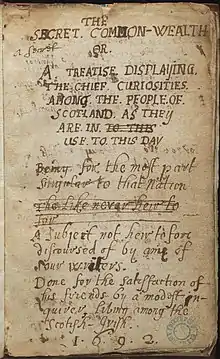 THE
SECRET COMMON-WEALTH
OR
A TREATISE DISPLAYING
THE CHIEF CURIOSITIES
AMONG THE PEOPLE OF
SCOTLAND AS THEY
ARE IN TO THIS
USE TO THIS DAY
Being for the most part
singular to that Nation
The like never heir to
for
A Subject not heirtofore
discoursed of by anie of
our writers.
Done for the satisfaction of
his friends by a modest in-
quirer, living among the
Scotish-Irish.
1692